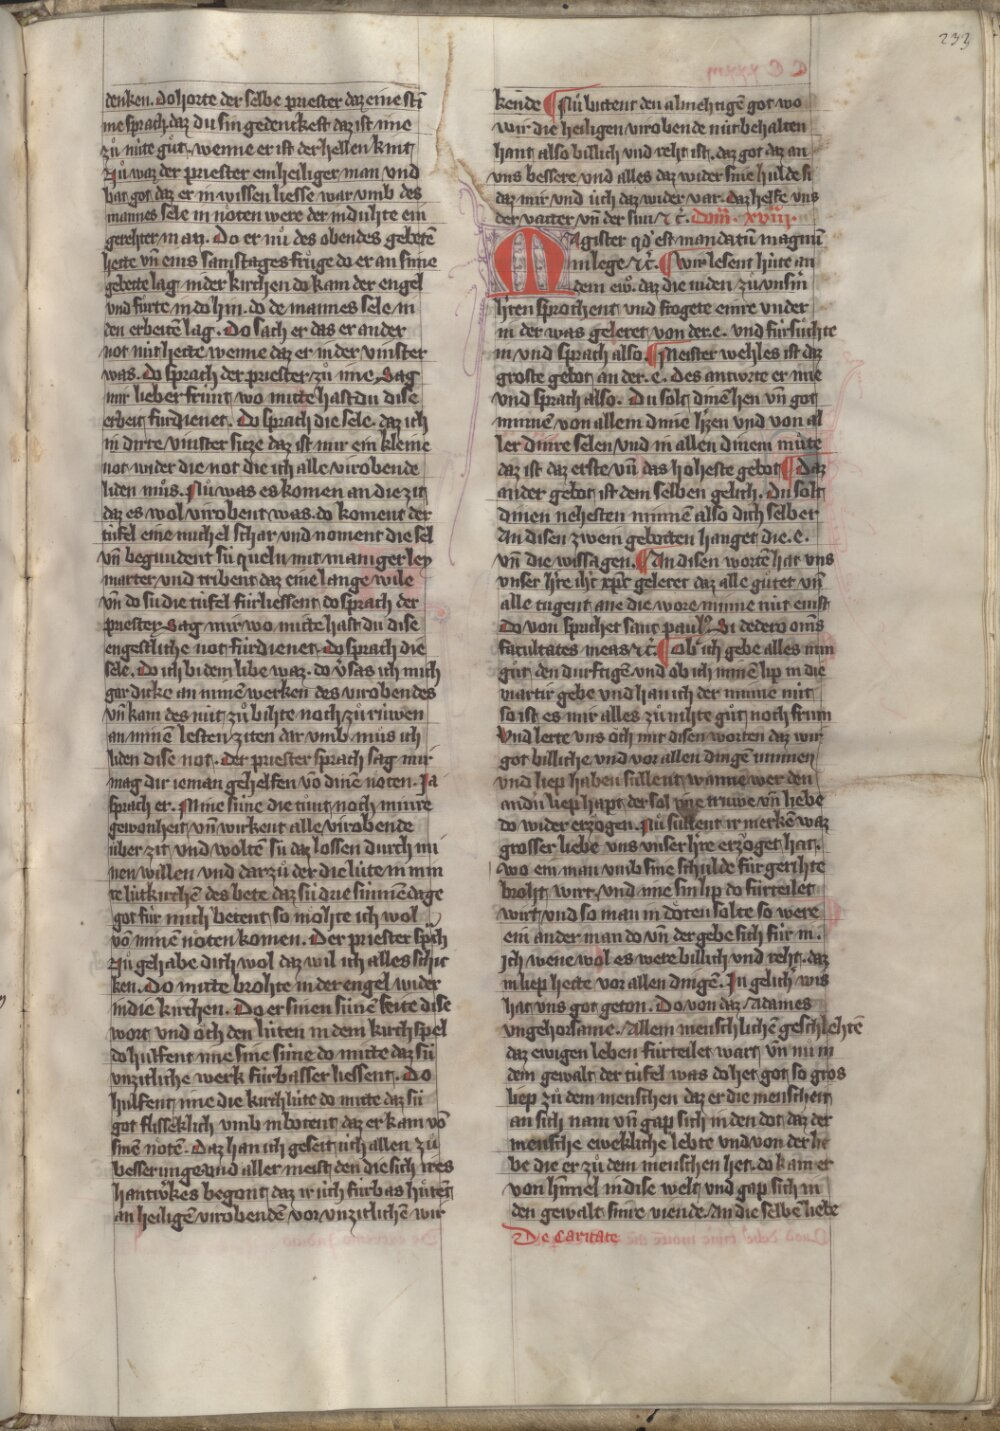 233
denken. Do horte der selbe priester daz eine sti
me sprach daz du sin gedenckest daz ist ime
zů nüte gůt. wenne er ist der hellen kint
Nů waz der priester ein heiliger man und
bat got daz er in wissen liesse war umb des
mannes sele in noten were der in duhte ein
gerehter man. Do er nů des obendes gebetē
hette vn̄ eins samstages frůge do er an sime
gebette lag in der kirchen do kam der engel
und fůrte in do hin. do de mannes sele in
den erbeitē lag. Do sach er das er ander
not nüt hette wenne daz er in der vinster
was. Do sprach der priester zů ime. Sag
mir lieber frünt wo mitte hastu dise
erbeit fürdienet. Do sprach die sele. daz ich
in dirre vinster sitze daz ist mir ein kleine
not wider die not die ich alle virobende
liden můs. Nů was es komen an die zit
daz es wol virobent was. do koment der
tüfel eine michel schar und noment die sel
vn̄ begundent sü queln mit maniger ley
marter und tribent daz eine lange wile
vn̄ do sü die tüfel fürliessent do sprach der
priester. Sag mir wo mitte hast du dise
engestliche not fürdienet. Do sprach die
sele. Do ich bi dem libe waz. do v̓sas ich mich
gar dicke an minē werken des virobendes
vn̄ kam des nüt zů bihte noch zů rüwen
an minē lesten ziten dar umb můs ich
liden dise not. Der priester sprach sag mir
mag dir ieman gehelfen vō dinē nöten. Ja
sprach er. Mine süne die tůnt noch mine
gewonheit vn̄ wirkent alle virobende
über zit und woltē sü daz lossen durch mi
nen willen und dar zů der die lüte in min
re lütkirchē des bete daz sü drie sünnēdage
got für mich betent so möhte ich wol
vō minē nöten komen. Der priester sp̄ch
Nů gehabe dich wol daz wil ich alles schic
ken. Do mitte brohte in der engel wider
in die kirchen. Do er sinen sünē seite dise
wort und öch den lüten in dem kirchspel
do hulfent ime sine süne do mitte daz sü
unzitliche werk fürbasser liessent. Do
hulfent ime die kirchlüte do mitte daz sü
got flisseklich umb in botent daz er kam vō
sinē nötē. Daz han ich geseit üch allen zů
besserunge und aller meist den die sich irres
hantw̓kes begont daz ir üch fürbas hůtent
an heiligē virobendē vor unzitlichē wir
kende Nů bittent den almehtigē got wo
wir die heiligen virobende nüt behalten
hant also billich und reht ist. daz got daz an
uns bessere und alles daz wider sine hulde si
daz mir und üch daz wider var. daz helfe uns
der vatter vn̄ der sun ⁊ c̄. Dom̄. xviii.
Magister qd̓ est mandatū magnū
in lege ⁊ c̄. Wir lesent hüte an
dem ew̄. daz die iuden zů unsīn
h̓ren sprochent und frogete einre under
in der was geleret von der .e. und fürsůchte
in und sprach also. Meister wehles ist daz
groste gebot an der .e. Des antwrte er ime
und sprach also. Du solt dinē h̓ren vn̄ got
minnen von allem dinē h̓zen und von al
ler dinre selen und in allen dinem můte
daz ist daz erste vn̄ das hoheste gebot Daz
ander gebot ist dem selben gelich. Du solt
dinen nehesten minnē also dich selber
An disen zwein gebotten hanget die .e.
vn̄ die wissagen. An disen wortē hat uns
unser h̓re ih̄c xp̄c geleret daz alle gütet vn̄
alle tugent ane die wore minne nüt enist
Do von sprichet sant paul9. Si dedero om̄s
facultates meas ⁊ c̄. Ob ich gebe alles min
gůt den dürftigē und ob ich minē lip in die
martir gebe und han ich der minne nüt
so ist es mir alles zů nihte gůt noch frum
Und lerte uns öch mit disen worten daz wir
got billiche und vor allen dingē minnen
und liep haben süllent wanne wer den
andn̓ liep hapt der sol ime truwe vn̄ liebe
do wider erzögen. Nů süllent ir merkē waz
grosser liebe uns unser h̓re erzöget hat.
wo ein man umb sine schulde für gerihte
broht wirt und ime sin lip do fürteilet
wirt und so man in döten solte so were
ein ander man do vn̄ der gebe sich für in.
Ich wene wol es were billich und reht. daz
in liep hette vor allen dingē. In gelich̓ wis
hat uns got geton. Do von daz Adames
ungehorsame. Allem menschlichē geschlehtē
daz ewigen leben fürteilet wart vn̄ nü in
dem gewalt der tüfel was do het got so gros
liep zů dem menschen daz er die menscheit
an sich nam vn̄ gap sich in den dot daz der
mensche ewekliche lebte und von der lie
be die er zů dem menschen het. do kam er
von himel in dise welt und gap sich in
den gewalt sinre viende. An die selbe liebe
De Caritate